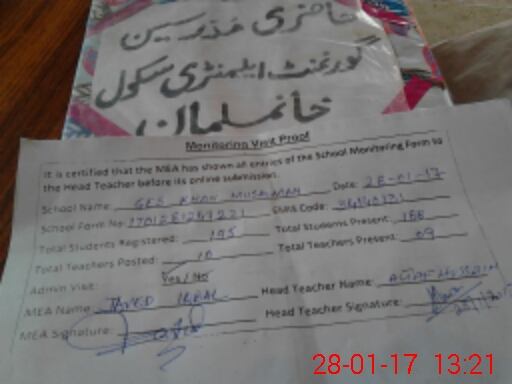 حاضری مدرسین
گورنمنٹ ایلیمنٹری سکول
خانمسلمان
Monitoring Visit Proof
It is certified that the MEA has shown all entries of the School Monitoring Form to
the Head Teacher before its online submission.
School Name: GES KHAN MUSALMAN Date: 28-01-17
School Form No: EMIS Code:
Total Students Registered: 195 Total Students Present: 188
Total Teachers Posted: 10 Total Teachers Present: 09
Admin Visit: Yes/No
MEA Name: JAVED IQBAL Head Teacher Name: ALTAF HUSSAIN
MEA Signature: Head Teacher Signature:
28-01-17 13:21